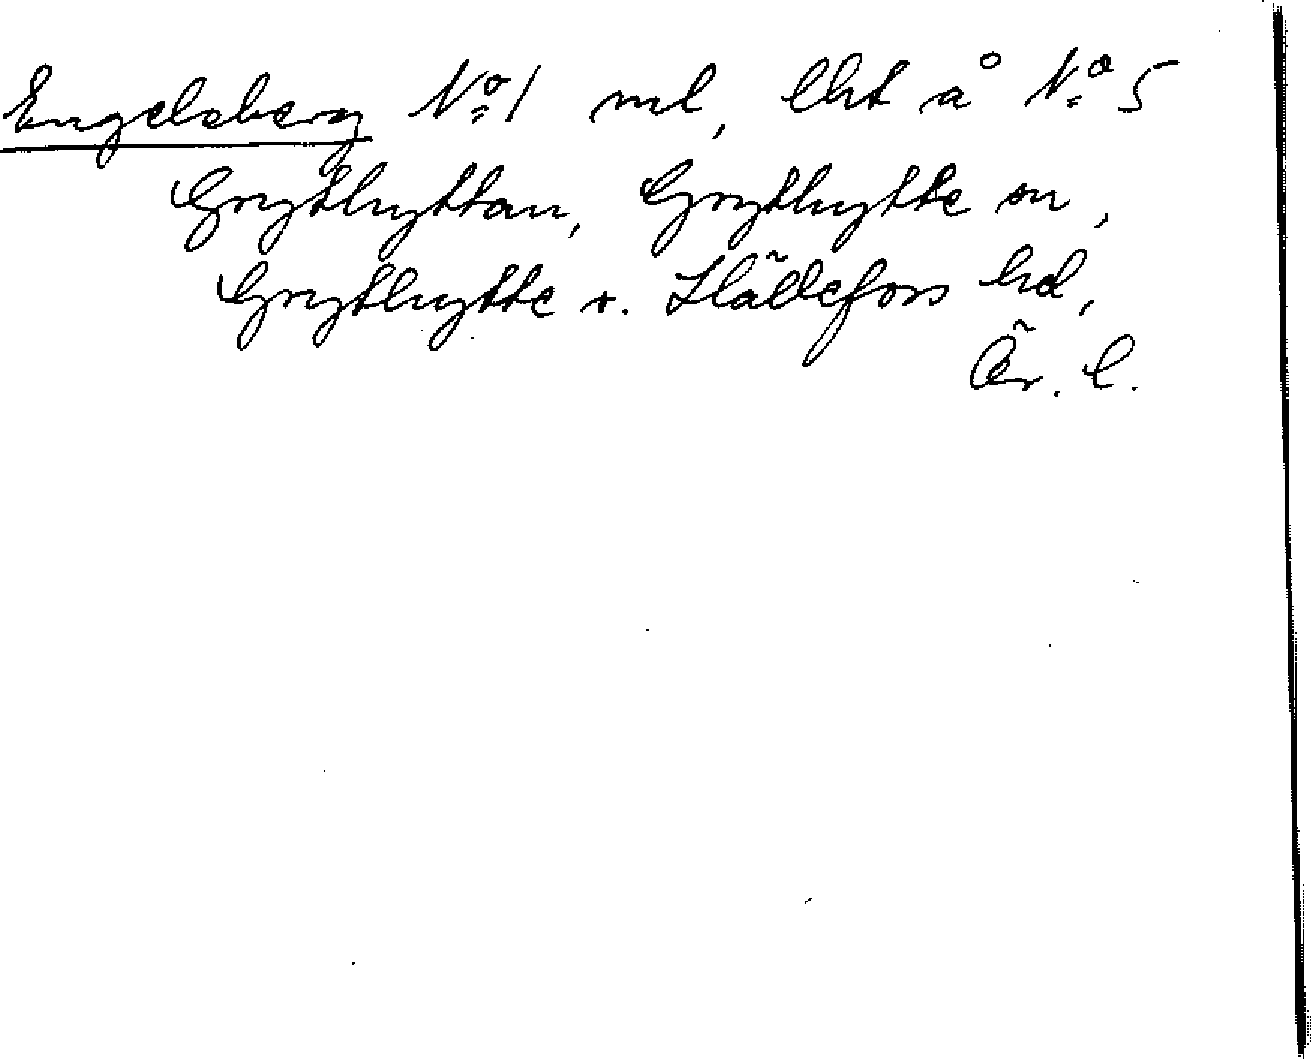 Engelsberg No 1 ml, lht å No 5
Grythyttan, Grythytte sn,
Grythytte o. Hällefors hd,
Ör. l.